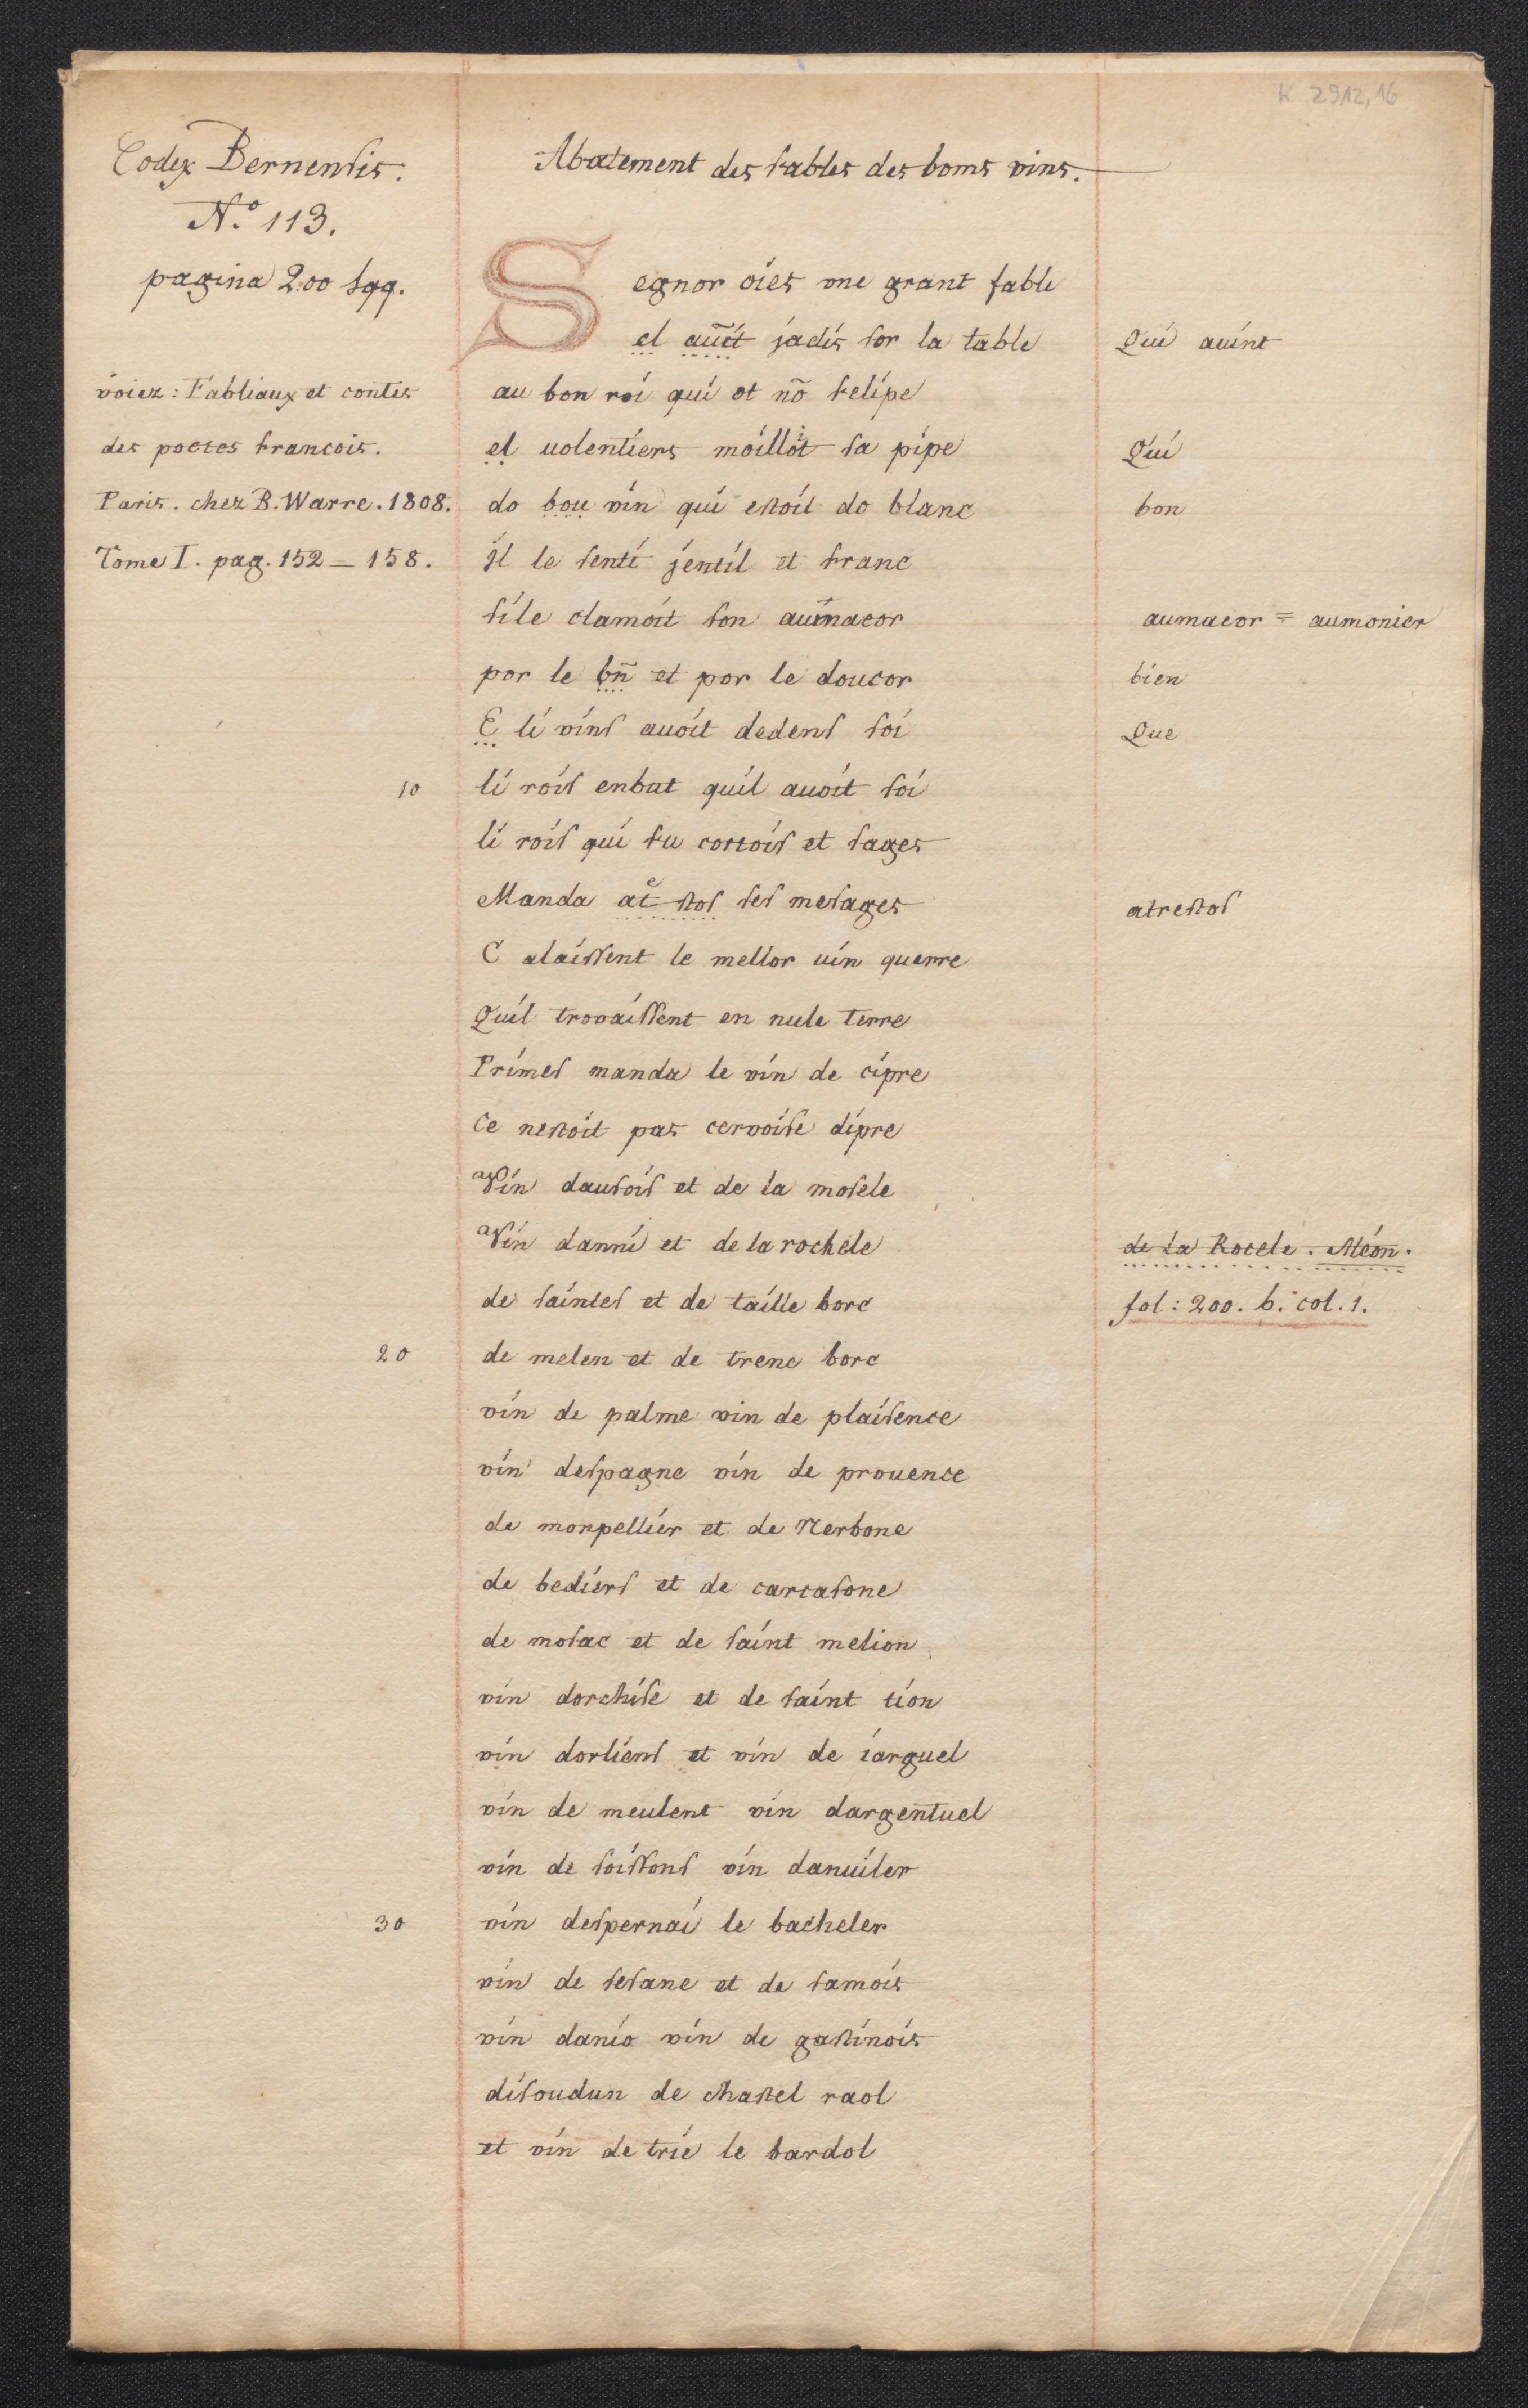 K 2912,16
Codex Bernensis.
N.º 113.
pagina 200 sqq.
voiez: Fabliaux et contes
des poetes francois.
Paris. chez B. Warre. 1808.
Tome I. pag. 152 = 158.
Abatement des fables des boms vins.
Segnor oies vne grant fable
el auīt jadis sor la table Qui auint
au bon roi qui ot nō felipe
el uolentiers moilloit sa pipe Qui
do bou vin qui estoit do blanc bon
Jl le senti jentil et franc
sile clamoit son aumacor aumacor = aumonier
por le bn̄ et por le doucor bien
E li vins auoit dedens soi Que
10 li rois enbut quil auoit soi
li rois qui fu cortois et sages
Manda at^e stos ses mesages atrestos
C alaissent le mellor uin querre
Quil trovaissent en nule terre
Primes manda le vin de cipre
Ce nestoit pas cervoise dipre
Vin dausois et de la mosele
Vin danni et de la rochele de la Rocele. Méon.
de saintes et de taille borc fol: 200. b. col. 1.
20 de melen et de trenc borc
vin de palme vin de plaisence
vin despagne vin de prouence
de monpellier et de Nerbone
de bediers et de carcasone
de mosac et de saint melion
vin dorchise et de saint tion
vin dorliens et vin de iarguel
vin de meulent vin dargentuel
vin de soissons vin danuiler
30 vin despernai le bacheler
vin de sesane et de samois
vin danio vin de gastinois
disoudun de chastel raol
et vin de trie le bardol